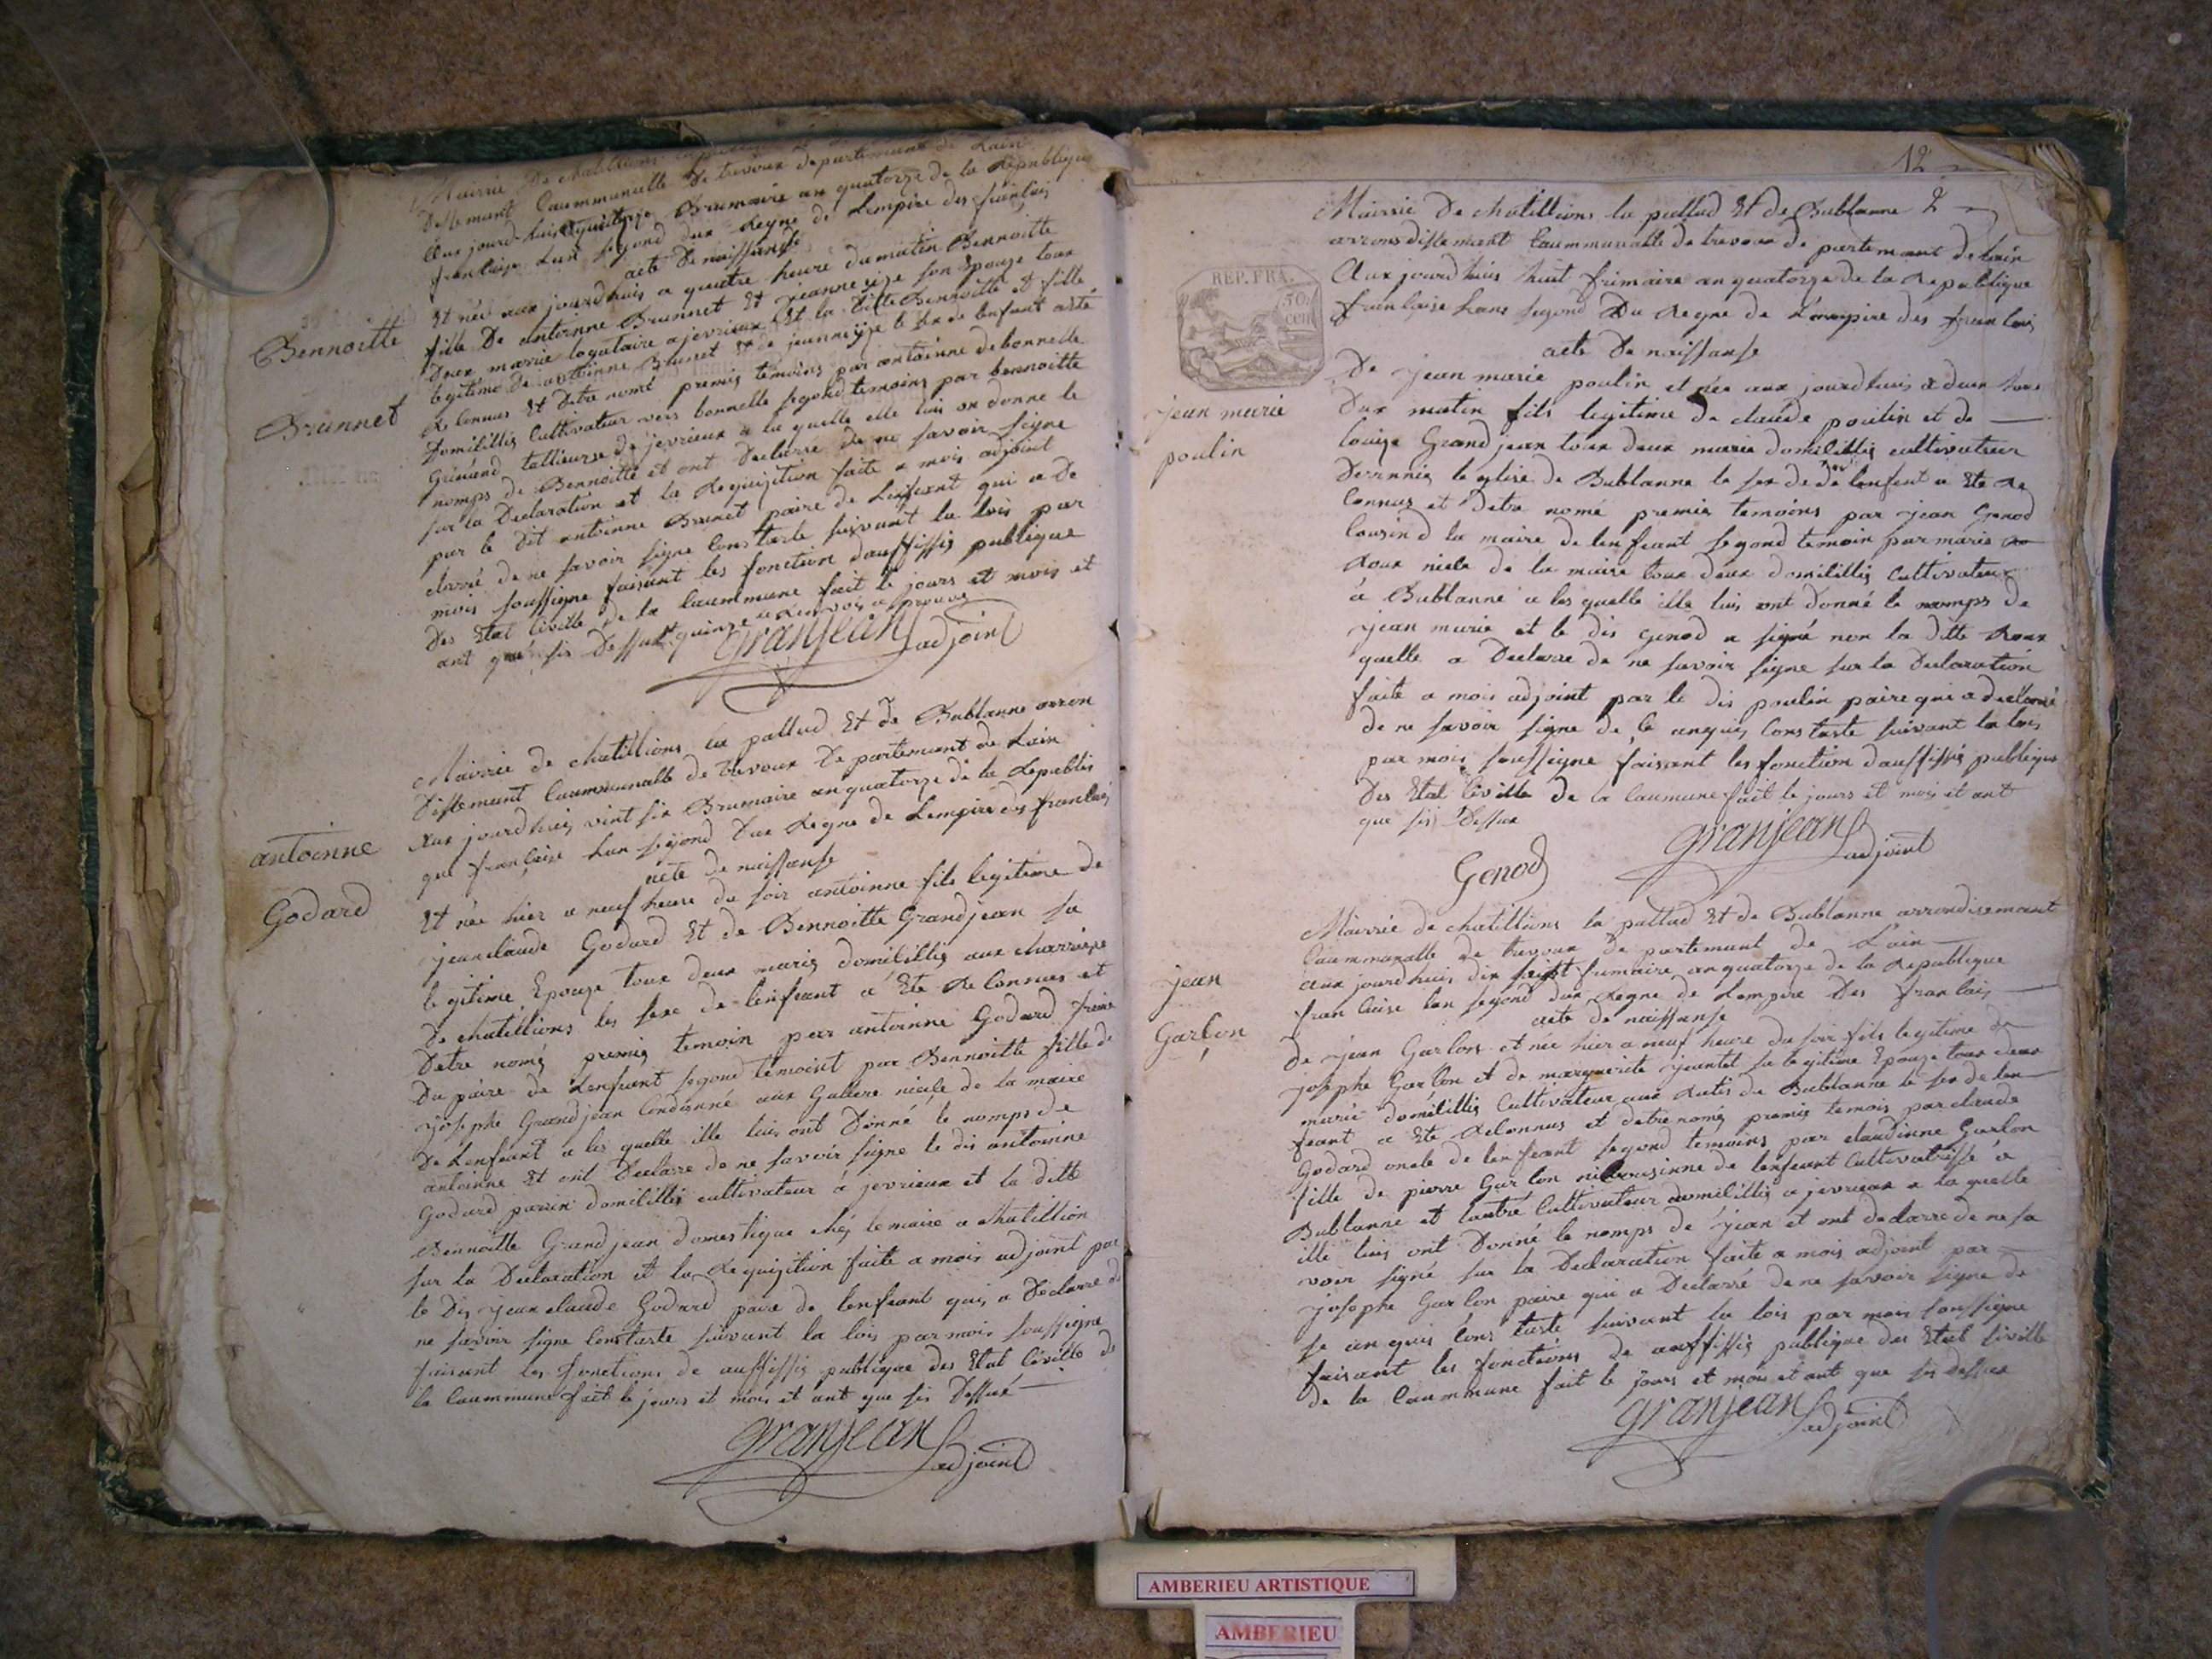 Mairrie De chatillions
Dissemant Caummunalle De trevoux departement de Lain
Aux jourd huis quatorze Brumaire an quatorze de la Republique
francaise Lan segond dux Regne de Lempire des francais
acte De naissanse
Bennoitte
Brunnet
Et née aux jourdhuis a quatre heure du matin Bennoitte
fille De antoinne Brunnet Et jeanne size son Epouze toux
deux marrie logataire a jevrieux Est la ditte Bennoitte et fille
legitime de antoinne Brunet Et de jeanne size le sex de lenfant a ete
Reconnus Et Detre nomé premis temoins par antoinne debonnelle
Domicillis Cultivateur vers bonnelle segond temoins par bennoitte
tallieuze de jevrieux a la quelle elle luis on donne le
nomps de Bennoitte et ont Declarre de ne savoir signe
sur la Declaration et la Requizition faite a mois adjoint
par le dit antoinne Brunet paire de Lenfeant qui a De
clarré de ne savoir signe Constaste suivant la lois par
mois soussigne faisant les fonction dauffissis publique
Des Etat Civille de la Caummune fait le jours et mois et
ant que sis Dessus quinze a Renvois aprouve
granjean adjoint
Mairrie de chatillions la pallud Et de Bublanne arron
dissemant Caummunalle de trevoux De partement de Lain
Aux jourdhuis vint six Brumaire an quatorze de la Republi
que francaise Lan segond Dux Regne de Lempire des francais
acte de naissanse
antoinne
Godard
Et née hier a neuf heure du soir antoinne fils legitime de
jeanclaude Godard Et de Bennoitte Grandjean sa
legitime Epouze toux deux maris domicillis aux charriere
De chatillions les sexe de lenfeant a Ete Reconnus et
Detre nomé premis temoin par antoinne Godard frere
Du paire de Lenfeant segond temoint par Bennoitte fille de
josephe Grandjean Condanné aux Gallere niele de la maire
De Lenfeant a les quelle ille luis ont Donné le nomps de
antoinne Et ont Declarre de ne savoir signe le dis antoinne
Godard parrin domicillis cultivateur a jevrieux et la ditte
Bennoitte Grandjean domestique chéz le maire a chatillion
sur la Declaration et la Requizition faite a mois adjoint par
le Dis jean claude Godard paire de lenfeant quis a Declarre de
ne savoir signe Constaste suivant la lois par mois soussigne
faisant les fonctions de auffissis publique des Etat Civille de
la Caummune fait le jours et mois et ant que sis Dessus
granjean adjoint
12
Mairrie De chatillions la pallud Et de Bublanne 2
arronsdissemant Caummunalle de trevoux de partemant de lain
Aux jourdhuis huit frimaire an quatorze de la Republique
francaise Lans segond Du Regne de Lempire des francais
REP. FRA.
50. cen
acte De naissanse
jean marie
poulin
De jean marie poulin et née aux jourdhuis a deux hure
Dux matin fils legitime De claude poulin et de
louize Grandjean toux deux marie domicillis cultivateur
Derrnnie leglise de Bublanne le sex de de lenfent a Ete Re
Connus et Detre nomé premis temoins par jean Genod
Cousin d la maire de lenfeant segond temoin par marie
Roux niele de la maire toux deux domicillis Cultivateur
á Bublanne a les quelle ille luis ont donné le nomps de
jean marie et le dis Genod a signé non la ditte Roux
quelle a Declarre de ne savoir signe sur la Declaration
faite a mois adjoint par le dis poulin paire qui a declarré
de ne savoir signe de ce anquis Constaste suivant la lois
par mois soussigne faisant les fonction dauffissis publique
Des Etat Civille de la Caumune fait le jours et mois et ant
que sis Dessus
Genod
granjean adjoint
Mairrie de chatillions la pallud Et de Bublanne arrondisemant
Caummunalle de trevoux de partemant de Lain
aux jourdhuis dix huist frimaire an quatorze de la Republique
francaise lan segond dux Regne de Lempire Des francais
acte de naissanse
jean
Garlon
De jean Garlon et née hier a neuf heure du soir fils legitime de
josephe Garlon et de marguerite jeantet sa legitime Epouze toux deux
marié domicillis Cultivateur aux Rutis de Bublanne le sex de len
feant a Ete Reconnus et detre nomé premis temois par claude
Godard oncle de lenfeant segond temoins par claudinne Garlon
fille de pierre Garlon cousinne de lenfeant Cultivatrisse á
Bublanne et lautre Cultivateur domicillis a jevrieux a la quelle
ille luis ont Donné le nomps de jean et ont declarre de ne sa
voir signé sur la Declaration faite a mois adjoint par
josephe Garlon paire qui a Declarré de ne savoir signe de
se anquis Constaste suivant la lois par mois soussigne
faisant les fonctions de auffissis publique des Etat Siville
de la Caummune fait le jours et mois et ant que sis dessus
granjean adjoint
AMBERIEU ARTISTIQUE
AMBERIEU